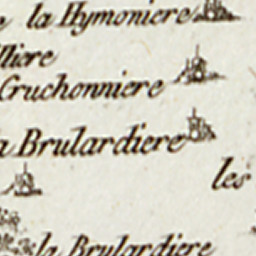 la Hymoniere
lliere
Cruchonniere
a Brulardiere
les
la Brulardiere